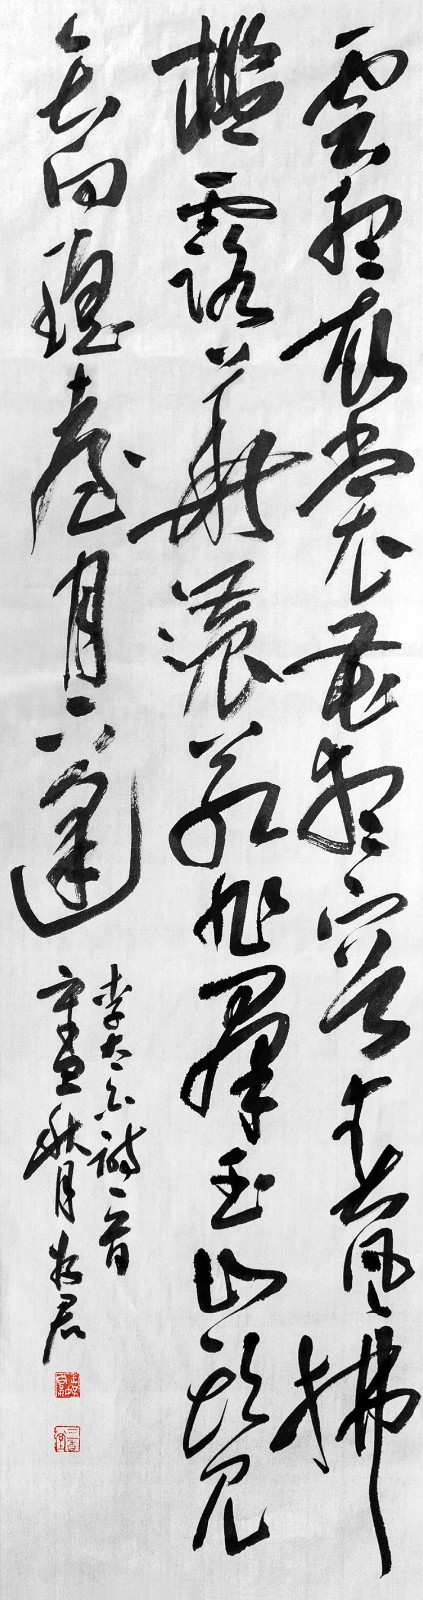 雲想衣裳花想容春風拂
檻露華濃若非羣玉山頭見
會向瑤臺月下逢
李太白詩一首
秋月